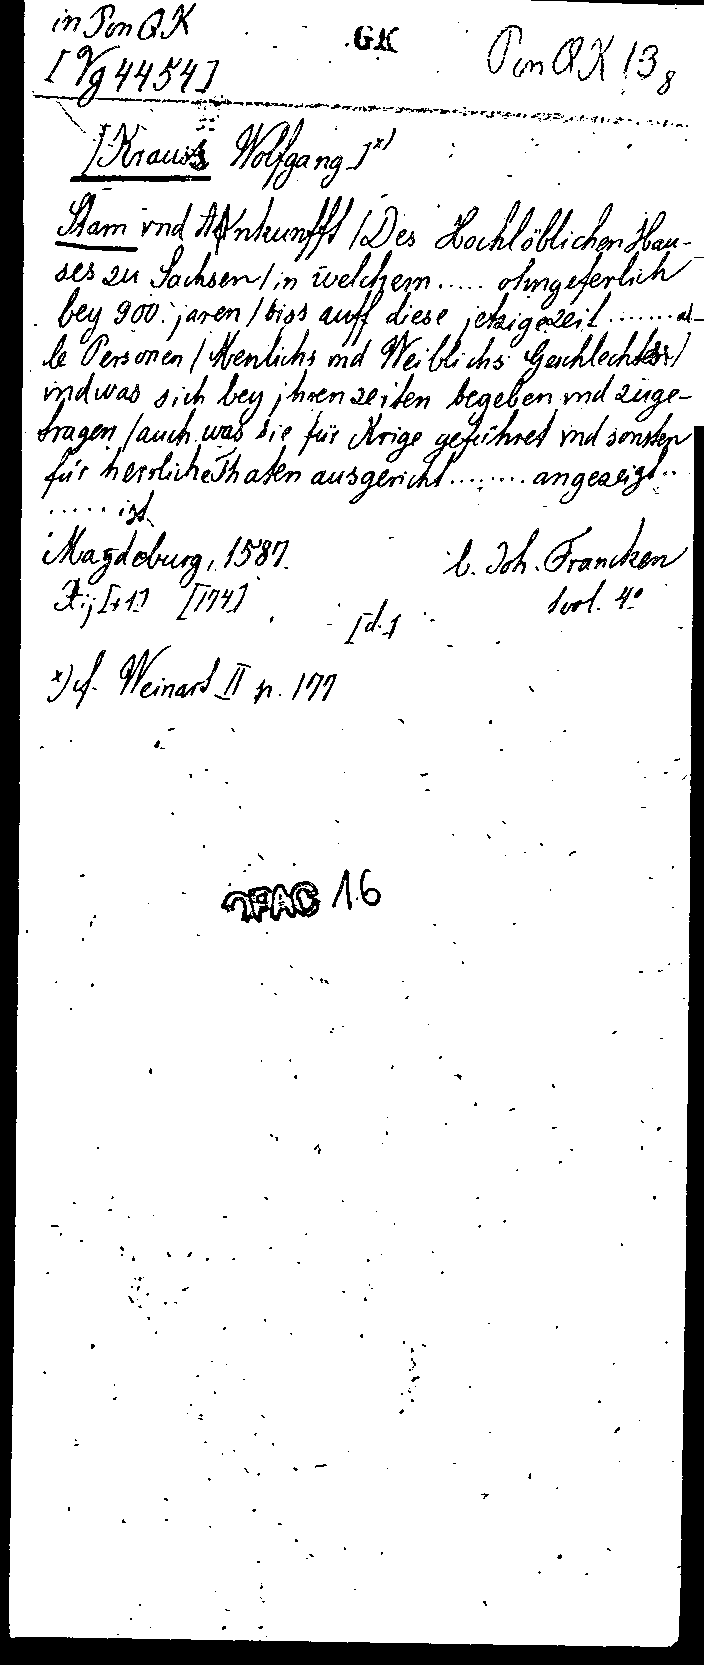 in Pon QK
GK
Pon QK 13 8
[Vg 4454]
[Krauss Wolfgang] x)
Stam vnd Ankunfft / Des Hochlöblichen Hau-
ses zu Sachsen / in welchem ..... ohngeferlich
bey 900. jaren / biss auff diese jetzige zeit ....... al-
le Personen / Menlichs vnd Weiblichs Geschlechtes /
vnd was sich bey jhren zeiten begeben vnd zuge-
tragen / auch was sie für Krige geführet vnd sonsten
für herrliche Thaten ausgericht ........ angezeigt ..
..... ist.
Magdeburg, 1587. b. Joh. Francken
Xij [+1] [174] 1 vol. 4°
[d.]
x) cf. Weinart II p. 177
OPAC 16